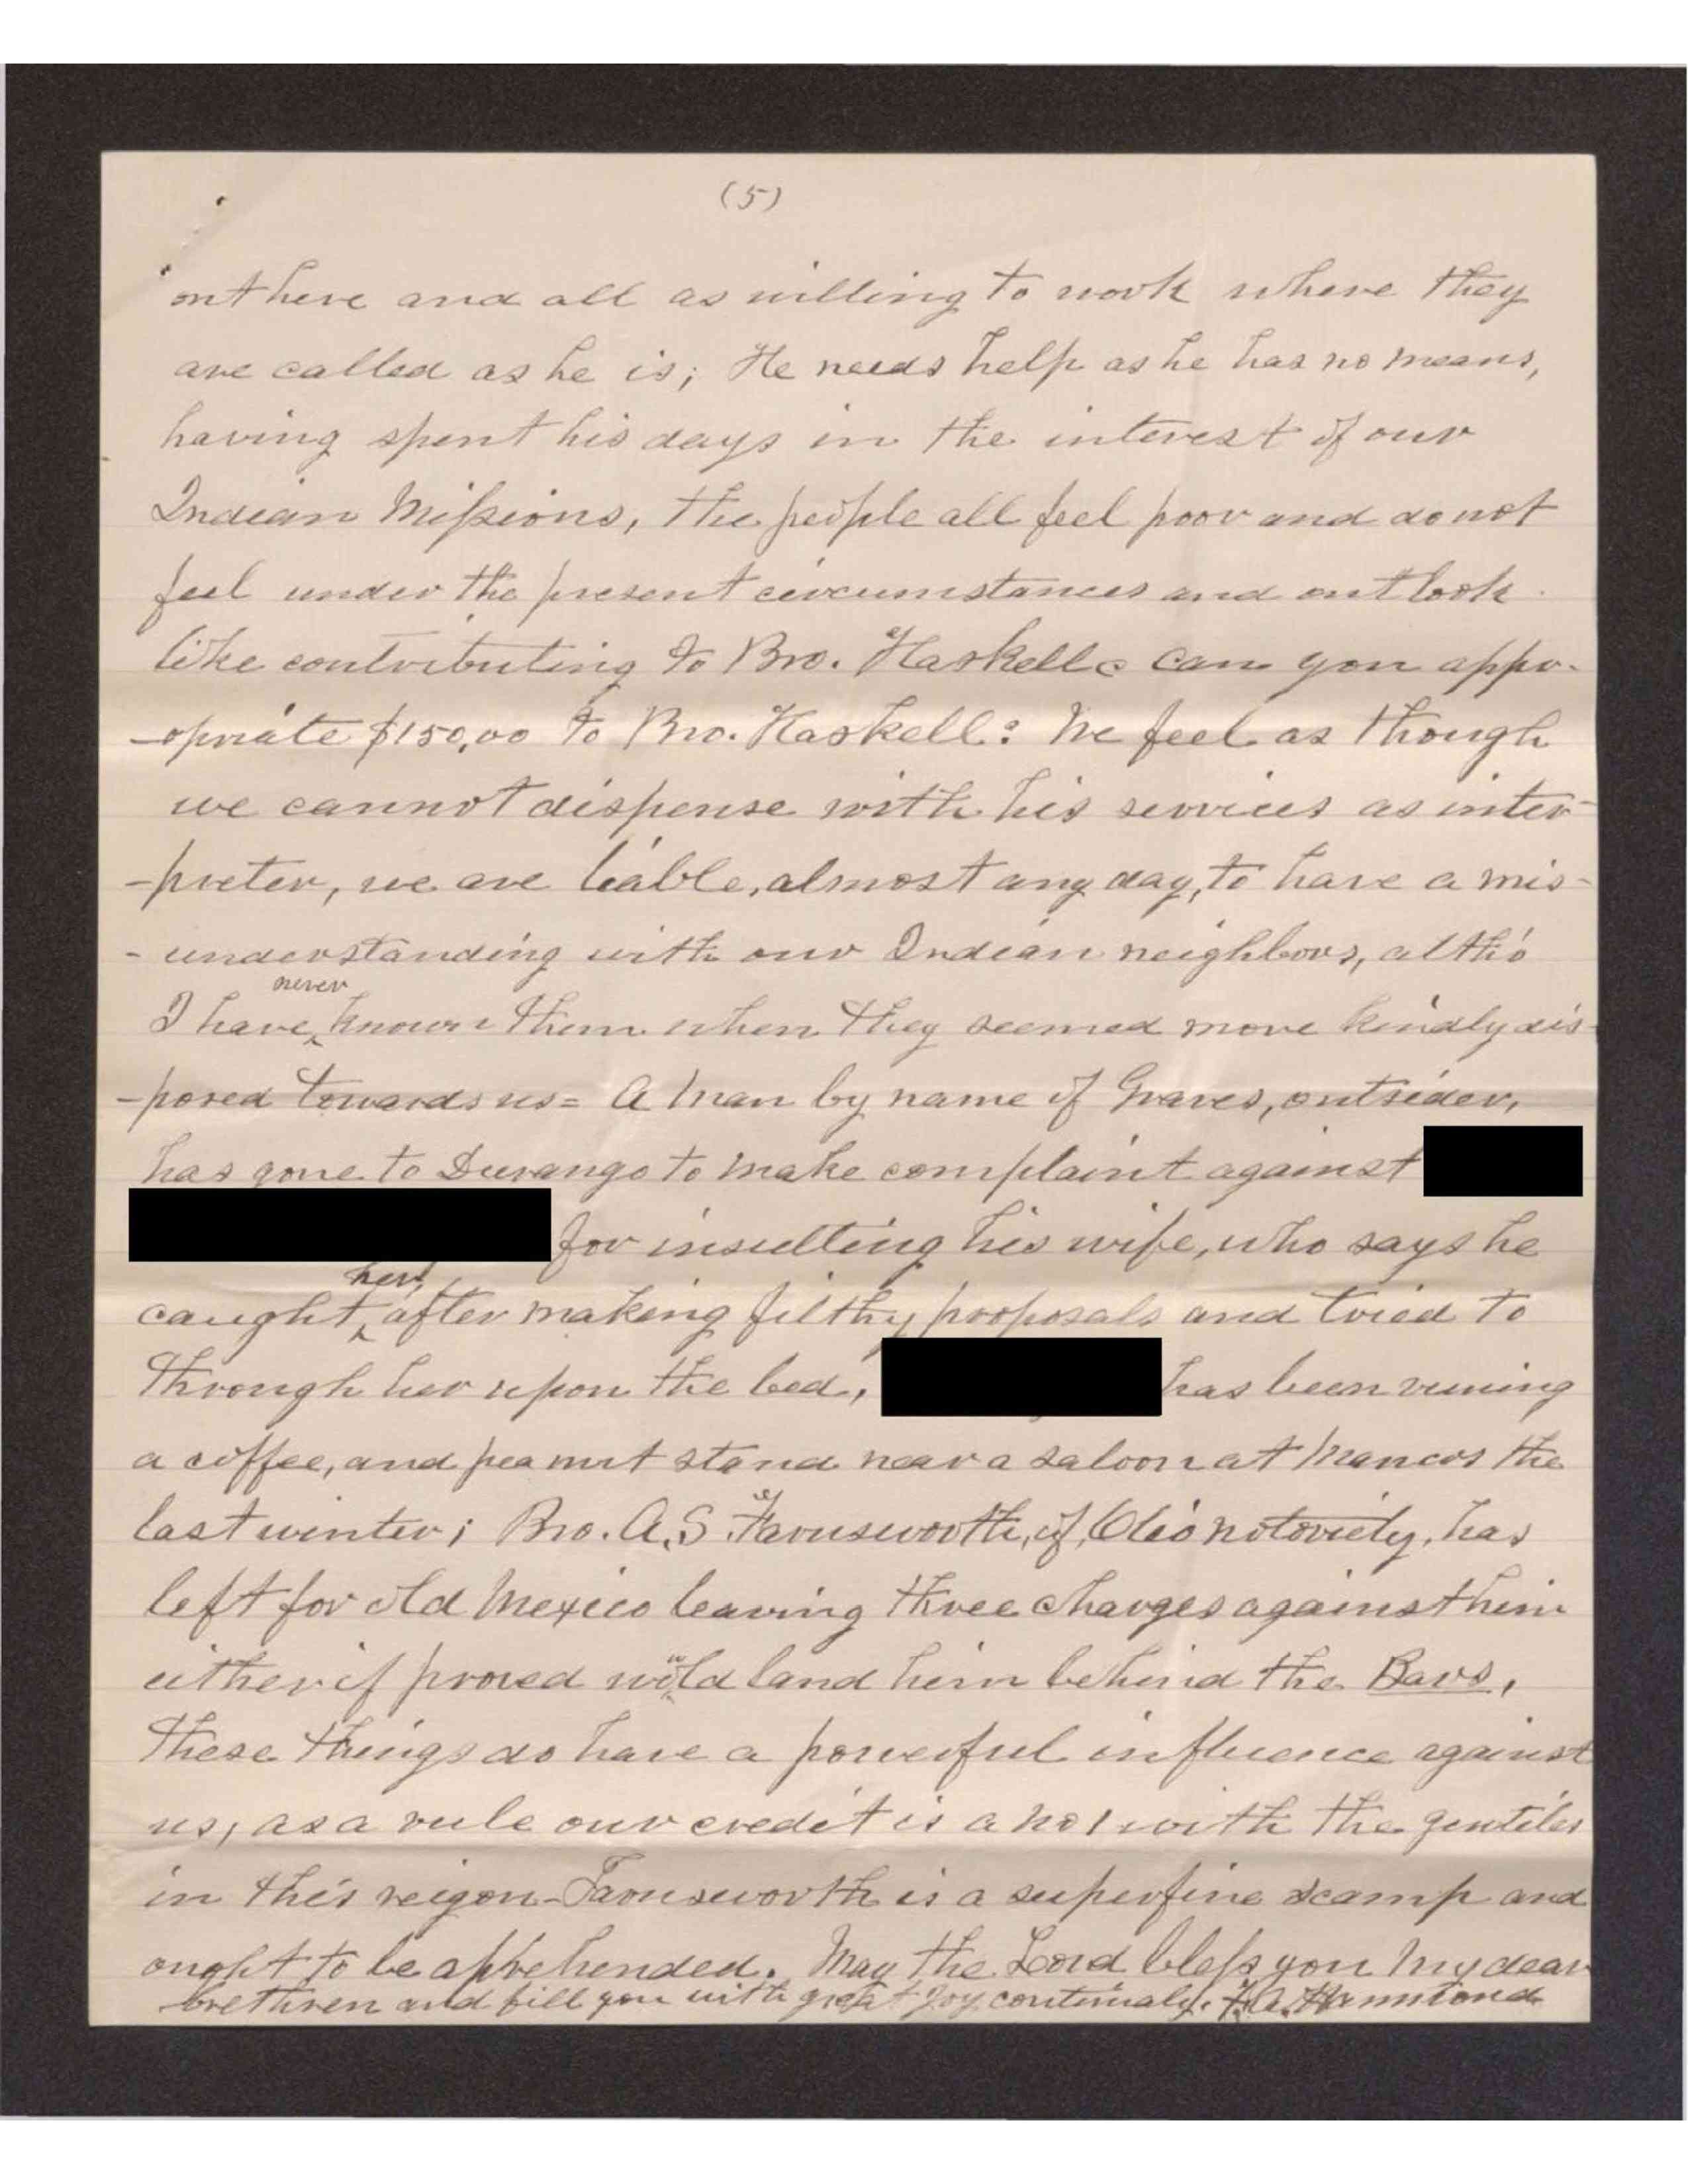 (5)
out here and all as willing to work where they
are called as he is; He needs help as he has no means,
having spent his days in the interest of our
Indian Missions, the people all feel poor and do not
feel under the present circumstances and outlook
like contributing to Bro. Haskell can you appr-
-opriate $150,00 to Bro. Haskell? We feel as though
we cannot dispense with his services as inter-
-preter, we are liable, almost any day, to have a mis-
-understanding with our Indian neighbors, altho
I have never known them when they seemed more kindly dis-
-posed towards us= A man by name of Graves, outsider,
has gone to Durango to make complaint against
for insulting his wife, who says he
caught her, after making filthy proposals and tried to
through her upon the bed, has been runing
a coffee, and peanut stand near a saloon at Mancos the
last winter; Bro. A.S. Farnsworth, of, Oleo notoriety, has
left for old Mexico leaving three charges against him
either if proved would land him behind the Bars,
these things do have a powerful influence against
us, as a rule our credit is a no 1 with the gentiles
in this reigon - Farnsworth is a superfine scamp and
ought to be apprehended. May the Lord bless you my dear
brethren and fill you with great joy continualy. F.A. Hammond